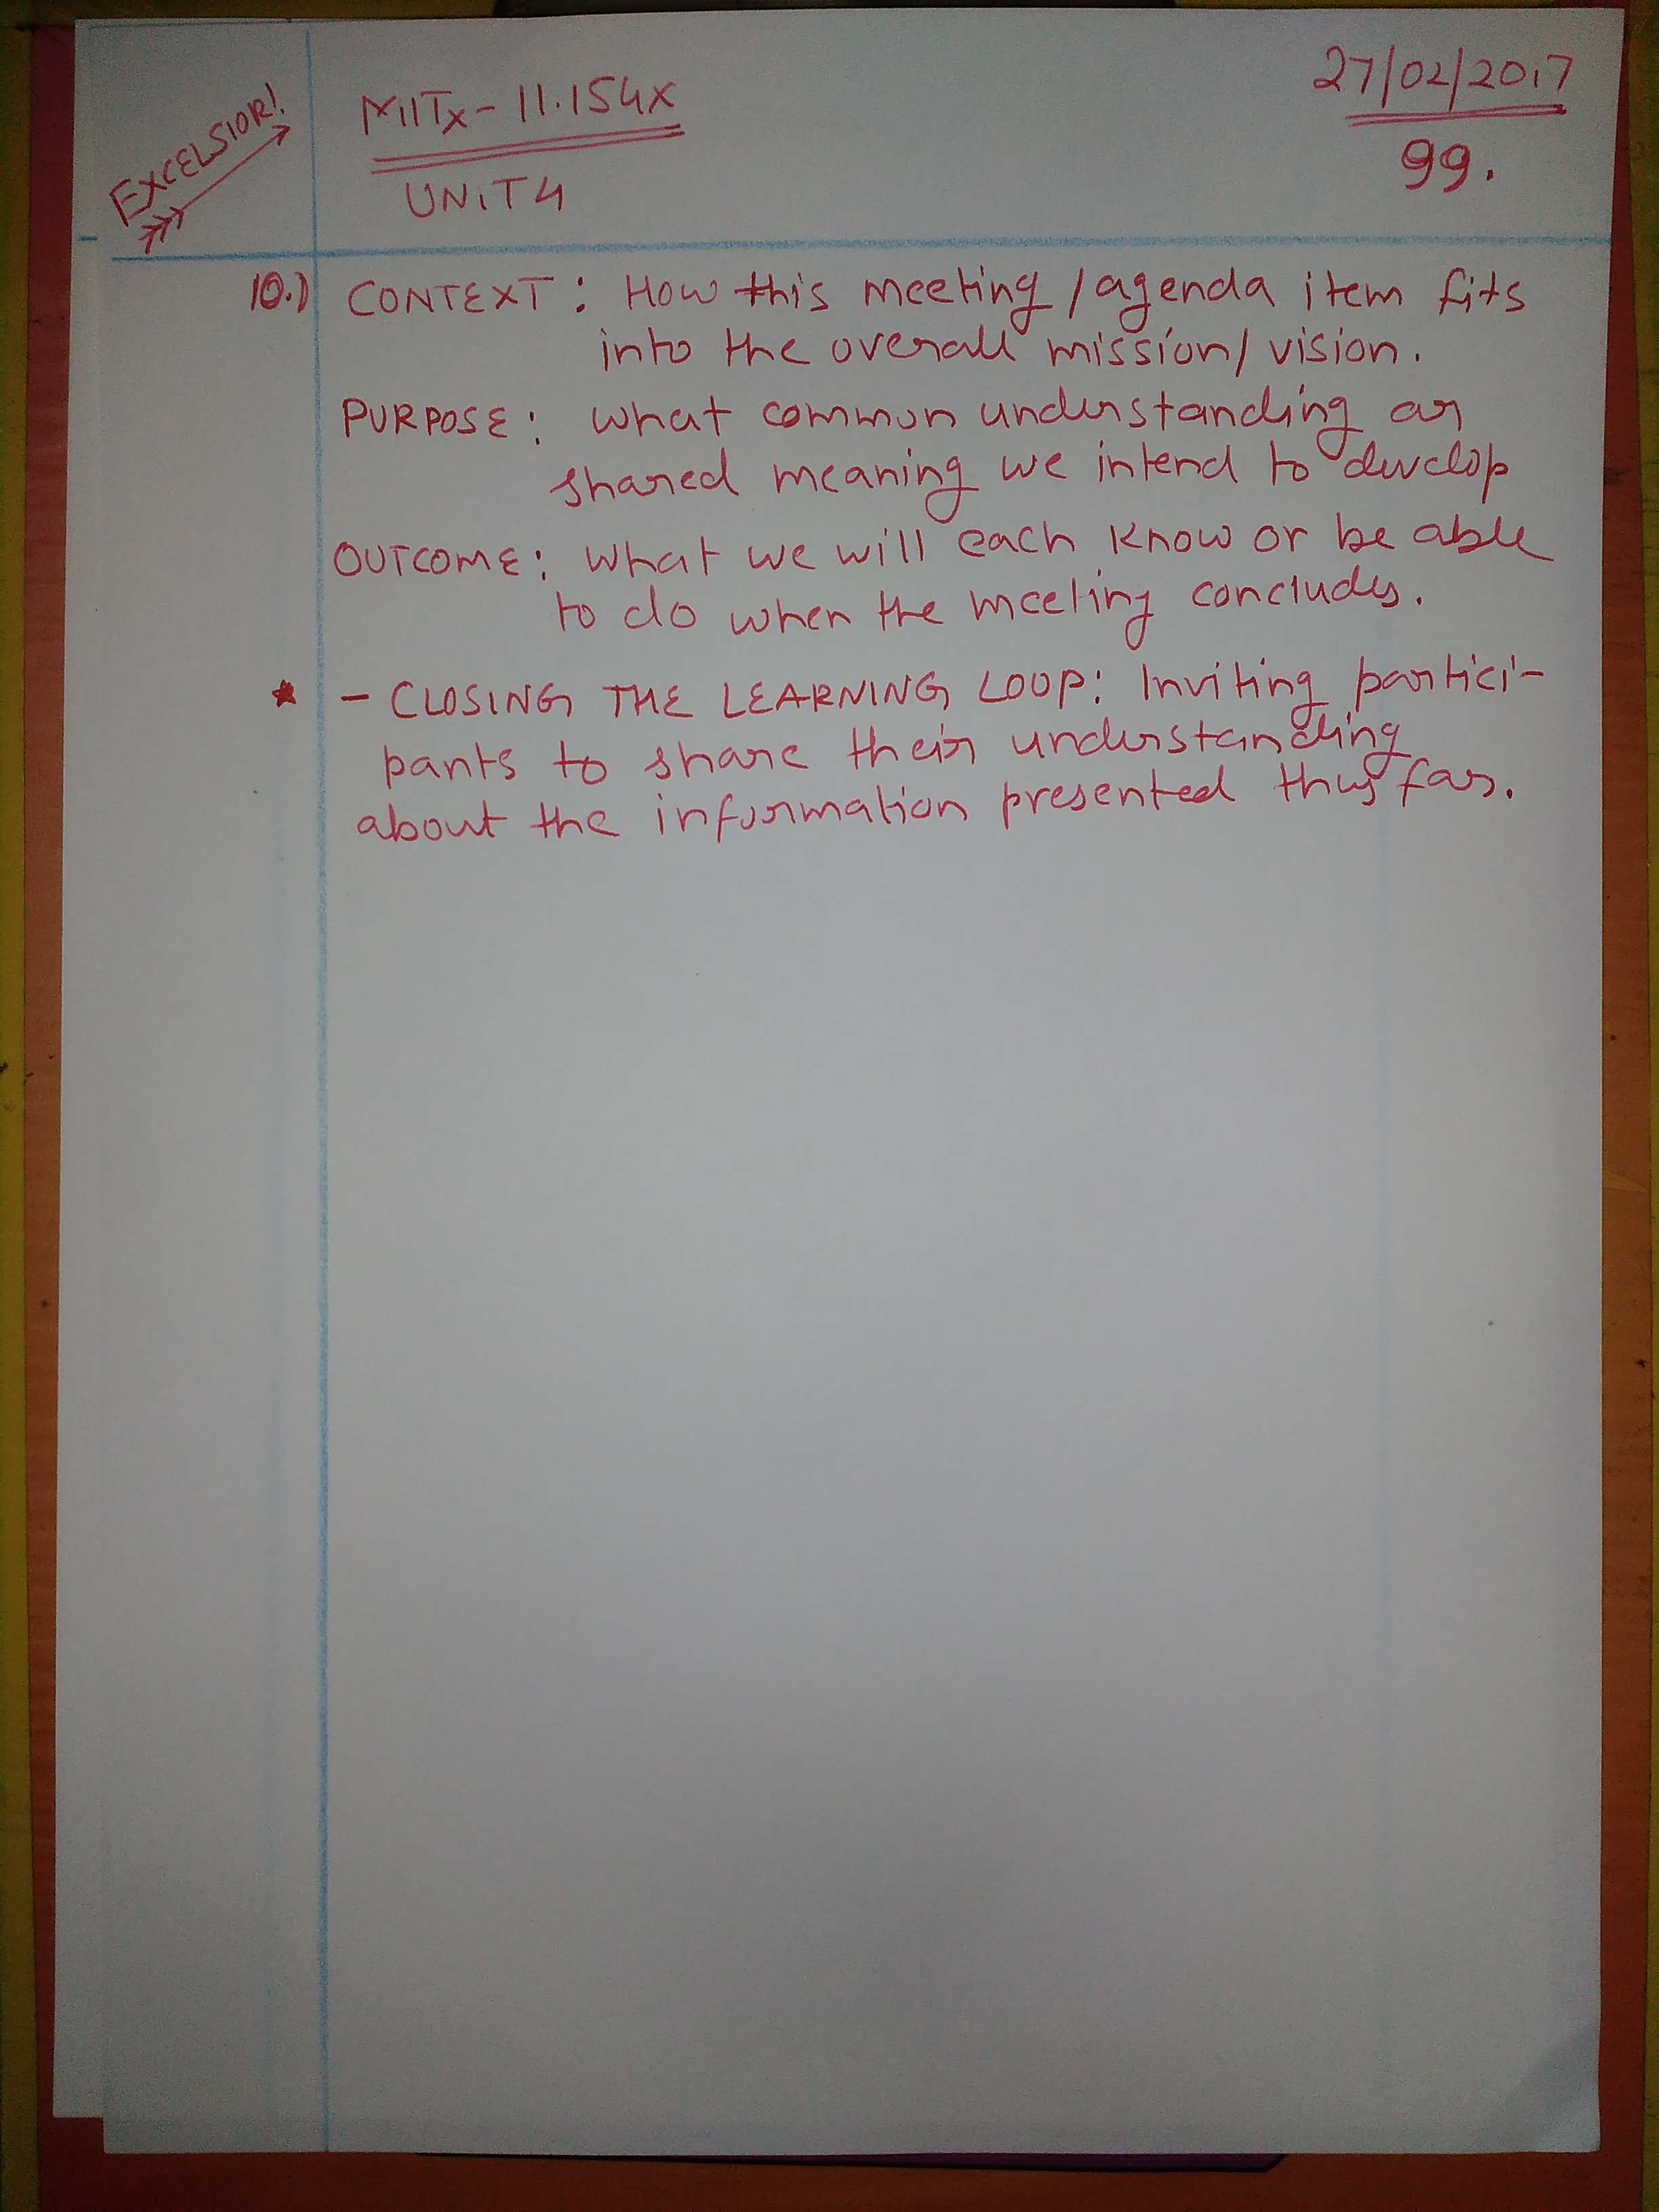 EXCELSIOR!
MITx - 11.154x
UNIT 4
27/02/2017
99.
10.) CONTEXT: How this meeting / agenda item fits
into the overall mission/vision.
PURPOSE: what common understanding or
shared meaning we intend to develop
OUTCOME: what we will each know or be able
to do when the meeting concludes.
★ - CLOSING THE LEARNING LOOP: Inviting partici-
pants to share their understanding
about the information presented thus far.